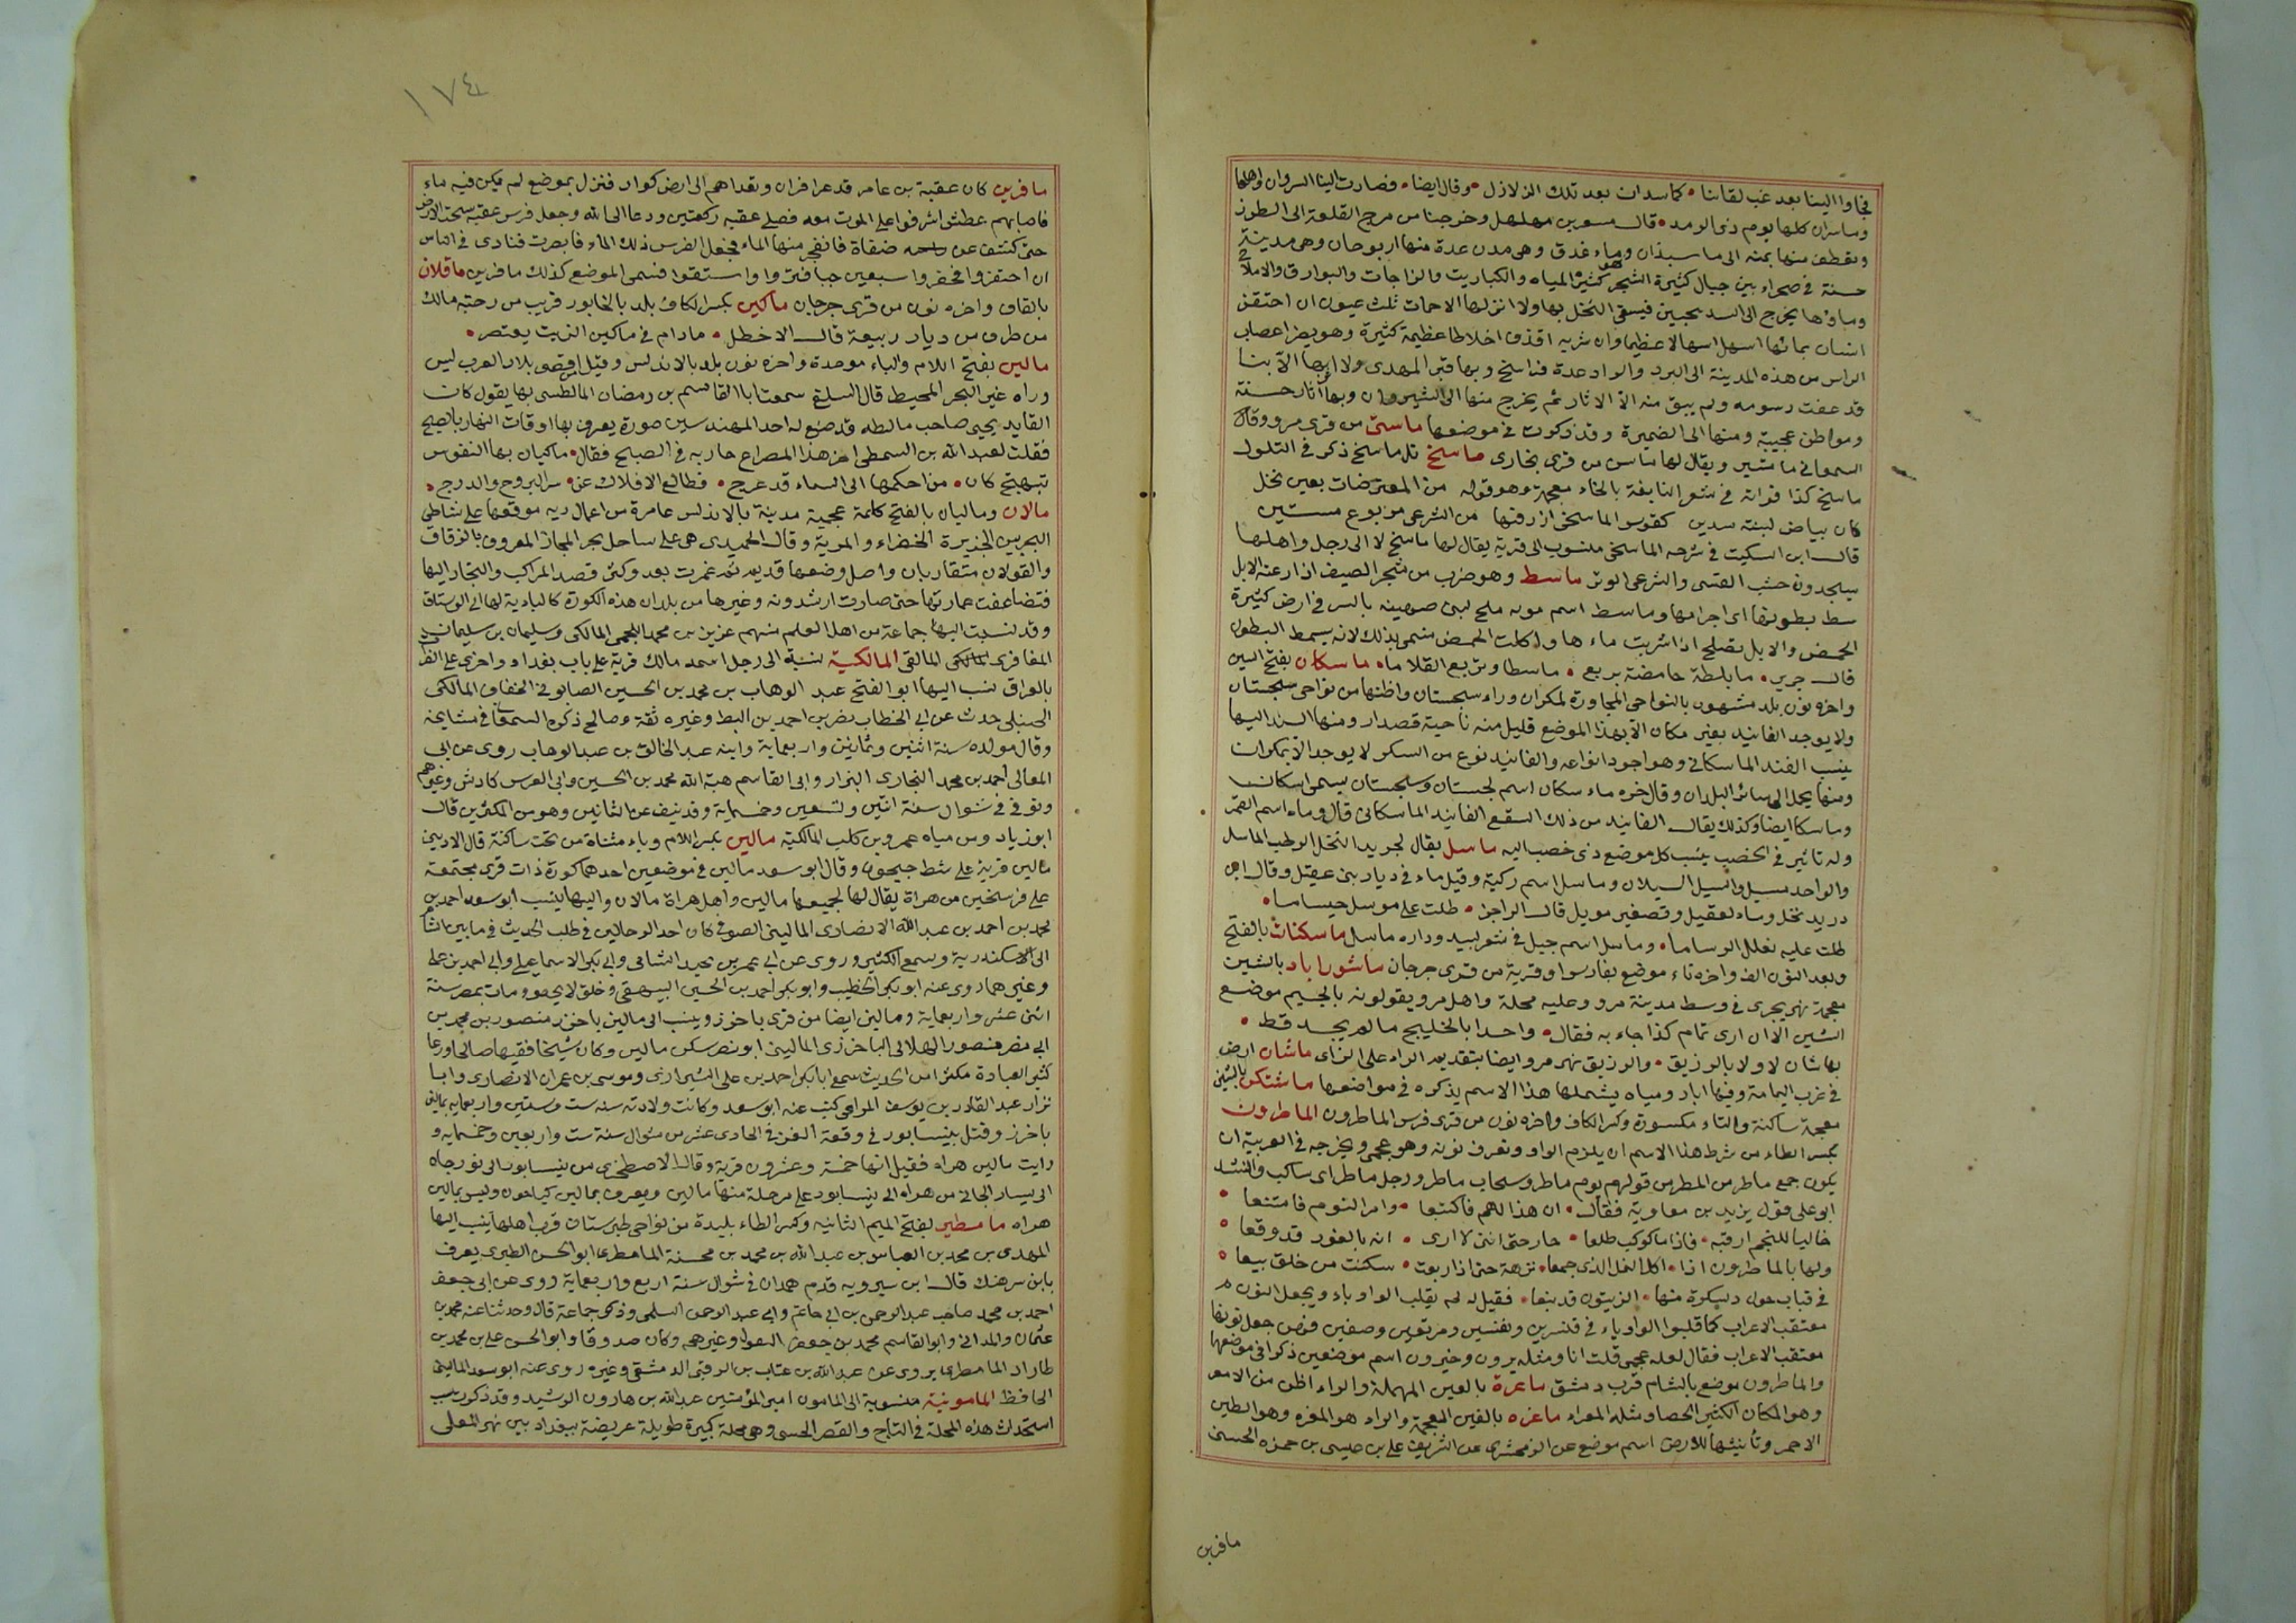 فجاوا الينا بعد غب لقاسنا • كماسدان بعد تلك الزلازل • وقال ايضا • فصارت الينا السروان واهلها
وماسبدان كلها يوم ذى الرمد • قال مسعر بن مهلهل وخرجنا من مرج القلعة الى الطرز
ونعطف منها يمنه الى ماسبذان وماء غدق وهى مدن عدة منها اربوحان وهى مدينة
حسنة فى صحراء بين جبال كثيرة الشجر كثيرة المياه والكباريت والزاجات والبوارق والاملاح
وماؤها يخرج الى البندنيجين فيسقى النخل بها ولا اثر لها الا حمات ثلث عيون ان احتقن
انسان بمائها اسهل اسهالا عظيما وان شربه اقذف اخلاطا عظيمة كثيرة وهو يضر اعصاب
الراس من هذه المدينة الى البرد والراد عدة فراسخ وبها قبر المهدى ولا اثر بها الا بنا
قد عفت رسومه ولم يبق منه الا الاثار ثم يخرج منها الى الشيروان وبها آثار حسنة
ومواطن عجيبة ومنها الى الضميرة وقد ذكرت فى موضعها ماستى من قرى مرو وقال
السمعانى ماستين ويقال لها ماستى من قرى بخارى ماسخ تل ماسخ ذكر فى التلول
ماسخ كذا قراته فى شعر النابغة بالخاء معجمة وهو قوله من المعترضات بعين نخل
كان بياض لبته سدين كقوس الماسخى ارن فيها من الشرعى مربوع متين
قال ابن السكيت فى شرحه الماسخى منسوب الى قرية يقال لها ماسخ لا الى رجل واهلها
يستجيدون خشب القسى والشرعى الوتر ماسط وهو ضرب من شجر الصيف اذا رعته الابل
مسط بطونها اى اخراجها وماسط اسم مويه ملح لبنى صهينه بالسر فى ارض كثيرة
الحمض والابل تصلح اذا شربت ماءها واكلت الحمض سمى بذلك لانه يمسط البطون
قال جرير • ما بلطة حامضة بربع • ماسطا وتربع القلاما • ماسكان بفتح السين
واخره نون بلد مشهور بالنواحى المجاورة لمكران وراء سجستان واظنها من نواحى سجستان
ولا يوجد الفانيد بغير مكان الا بهذا الموضع قليل منه ناحية قصدار ومنها اليها
ينسب الفند الماسكانى وهو اجود انواعه والفانيد نوع من السكر لا يوجد الا بمكران
ومنها يحمل الى سائر البلدان وقال حمزه ماء سكان اسم لسجستان وسجستان يسمى اسكان
وماسكان ايضا ولذلك يقال الفانيد من ذلك السقع الفانيد الماسكانى قال وماء اسم القمر
وله تاثير فى الخصب ينسب كل موضع ذى خصب اليه ماسل يقال لجريد النخل الرطب الماسل
والواحد مسيل والمسيل السيلان وماسل اسم ركية وقيل ماء فى ديار بنى عقيل وقال ابن
دريد نخل وماء لعقيل وتصغير مويسل قال الراجز • ظلت على مويسل حيساما •
ظلت عليه تعلك الرساما • وماسل اسم جبل فى شعر لبيد ودارة ماسل ماسكنات بالفتح
وبعد النون الف واخره تاء موضع بفارس او قرية من قرى جرجان ماشوراباد بالشين
معجمة نهر يجرى فى وسط مدينة مرو وعليه محلة واهل مرو يقولونه بالجيم موضع
الشين الا ان ارى تمام كذا جاء به فقال • واحدا بالخليج ما لم يجد قط •
بماشان لا ولا بالرزيق • والرزيق نهر مرو ايضا بتقديم الراء على الزاى ماشان ارض
فى غرب اليمامة وفيها ابار ومياه يشملها هذا الاسم يذكره فى مواضعها ماشتكن بالشين
معجمة ساكنة والتاء مكسورة وكسر الكاف واخره نون من قرى قرس الماطرون الماطرون
بكسر الطاء من شرط هذا الاسم ان يلزم الواو وتعرف نونه وهو عجمى ويخرجه فى العربية ان
يكون جمع ماطر من المطر من قولهم يوم ماطر وسحاب ماطر ورجل ماطر اى ساكب وانشد
ابو على قول يزيد بن معاوية فقال • ان هذا الهم فاكتنعا • وامر النوم فامتنعا •
خاليا للنجم ارقبه • فاذا ما كوكب طلعا • حار حتى اننى لا ارى • انه بالغور قد وقعا •
ولها بالماطرون اذا • اكل النمل الذى جمعا • نزهة حتى اذا ربعت • سكنت من خلق بيعا •
فى قباب حول دسكرة منها • الزيتون قد ينعا • فقيل له لم يقلب الواو ياء ويجعل النون
معتقب الاعراب كما قلبوا الواو ياء فى قنسرين ونصيبين ومرتعين وصفين فيمن جعل نونها
معتقب الاعراب فقال لعله عجمى قلت انا ومثله يرون وخيرون اسم موضعين ذكرا فى موضعهما
والماطرون موضع بالشام قرب دمشق ماعزة بالعين المهملة والراء اظن من الامعر
وهو المكان الكثير الحصا ومثله المعزاء ماغره بالغين المعجمة والراء هو المغره وهو الطين
الاحمر وتأنيثها للارض اسم موضع عن الزمخشرى عن الشريف على بن عيسى بن حمزه الحسنى
مافرين
١٧٤
مافرين كان عقبة بن عامر قد عزا فزان وتعداهم الى ارض كوار فنزل بموضع لم يكن فيه ماء
فاصابهم عطش اشرفوا على الموت معه فصلى عقبه ركعتين ودعا الى الله وجعل فرس عقبه يبحث الارض
حتى كشف عن صفاة فانفجر منها الماء فجعل الفرس ذلك الماء فابصرت فنادى فى الناس
ان احتفروا فحفروا سبعين حبا فشربوا واستقوا فسمى الموضع كذلك مافرين ماقلان
بالقاف واخره نون من قرى جرجان ماكين بكسر الكاف بلد بالخابور قريب من رحبة مالك
من طوق من ديار ربيعة قال الاخطل • مادام فى ماكين الزيت يعتصر •
مالين بفتح اللام والباء موحدة واخره نون بلد بالاندلس وقيل اقصى بلاد العرب ليس
وراه غير البحر المحيط قال السلفى سمعت ابا القاسم بن رمضان المالطى بها يقول كان
القايد يحيى صاحب مالطه قد صنع له احد المهندسين صورة يعرف بها اوقات النهار بالصبح
فقلت لعبد الله بن السمطى اجز هذا المصراع جاريه فى الصبح فقال • ماكيان بها النفوس
تبتهج كان • من احكمها الى السماء قد عرج • فطالع الافلاك عن • سر البروج والدرج •
مالان وماليان بالفتح كلمة عجمية مدينة بالاندلس عامرة من اعمال ريه موقعها على شاطى
البحر بين الجزيرة الخضراء والمرية وقال الحميدى هى على ساحل بحر المجاز المعروف بالزقاق
والقولان متقاربان واصل وضعها قديم ثم عمرت بعد وكثر قصد المراكب والتجار اليها
فتضاعفت عمارتها حتى صارت ارشدونه وغيرها من بلدان هذه الكورة كالبادية لها الى الرستاق
وقد نسبت اليها جماعة من اهل العلم منهم عزيز بن محمد اللخمى المالكى وسليمان بن سليمان
المغافرى المالكى المالقى المالكية نسبة الى رجل اسمه مالك قرية على باب بغداد واخرى على الفرات
بالعراق نسب اليها ابو الفتح عبد الوهاب بن محمد بن الحسين الصابونى الخفاف المالكى
الحنبلى حدث عن ابى الخطاب نصر بن احمد بن البطر وغيره ثقة وصالح ذكره السمعانى فى مشايخه
وقال مولده سنة اثنتين وثمانين واربعماية وابنه عبد الخالق بن عبد الوهاب روى عن ابى
المعالى احمد بن محمد البخارى البزار وابى القاسم هبة الله محمد بن الحسين وابى العز بن كادش وغيرهم
وتوفى فى شوال سنة اثنتين وتسعين وخمسماية وقد نيف عن الثمانين وهو من المكثرين قال
ابو زياد ومن مياه عمرو بن كلب المالكية مالين بكسر اللام وياء مثناة من تحت ساكنة قال الاديبى
مالين قرية على شط جيحون وقال ابو سعد مالين فى موضعين احدهما كورة ذات قرى مجتمعة
على فرسخين من هراة يقال لها لجميعها مالين واهل هراة مالان واليها ينسب ابو سعد احمد بن
محمد بن احمد بن عبد الله الانصارى المالينى الصوفى كان احد الرحالين فى طلب الحديث فى ما بين الشاش
الى الاسكندرية وسمع الكثير وروى عن ابى عمر بن نجيد الشامى وابى بكر الاسماعيلى وابى احمد بن على
وغيرهما روى عنه ابو بكر الخطيب وابو بكر احمد بن الحسين البيهقى وخلق لا يحصى ومات بمصر سنة
اثنى عشر واربعماية ومالين ايضا من قرى باخرز وينسب الى مالين باخرز منصور بن محمد بن
ابى نصر منصور الهلالى الباخرزى المالينى ابو نصر سكن مالين وكان شيخا فقيها صالحا ورعا
كثير العبادة مكثرا من الحديث سمع ابا بكر احمد بن على الشيرازى وموسى بن عمران الانصارى وابا
نزار عبد القادر بن يوسف المراحى كتب عنه ابو سعد وكانت ولادته سنه ست وستين واربعمايه بمالين
باخرز وقتل بنيسابور فى وقعة الغز فى الحادى عشر من شوال سنة ست واربعين وخمسمايه و
رايت مالين هراه فقيل انها خمسة وعشرون قرية وقال الاصطخرى من نيسابور الى بوزجاه
الى يسار الجائى من هراه الى نيسابور على مرحلة منها مالين ويعرف بمالين كباخون وليس بمالين
هراه مامطير بفتح الميم الثانيه وكسر الطاء بليدة من نواحى طبرستان قرب اهلها ينسب اليها
المهدى بن محمد بن العباس بن عبد الله بن محمد بن محسنة المامطرى ابو الحسن الطبرى يعرف
بابن سرهنك قال ابن سيرويه قدم همدان فى شوال سنة اربع واربعماية روى عن ابى جعفر
احمد بن محمد صاحب عبد الرحمن بن ابى حاتم وابى عبد الرحمن السلمى وذكر جماعة قال وحدثنا عنه محمد بن
عثمان والمدانى وابو القاسم محمد بن جعفر القواو وغيرهم وكان صدوقا وابو الحسن على بن محمد بن
طاراد المامطرى يروى عن عبد الله بن عتاب بن الرفتى الدمشقى وغيره روى عنه ابو سعد المالينى
الحافظ المامونية منسوبة الى المامون امير المؤمنين عبد الله بن هارون الرشيد وقد ذكرت سبب
استحداث هذه المحلة فى التاج والقصر الحسنى وهى محلة كبيرة طويلة عريضة ببغداد بين نهر المعلى